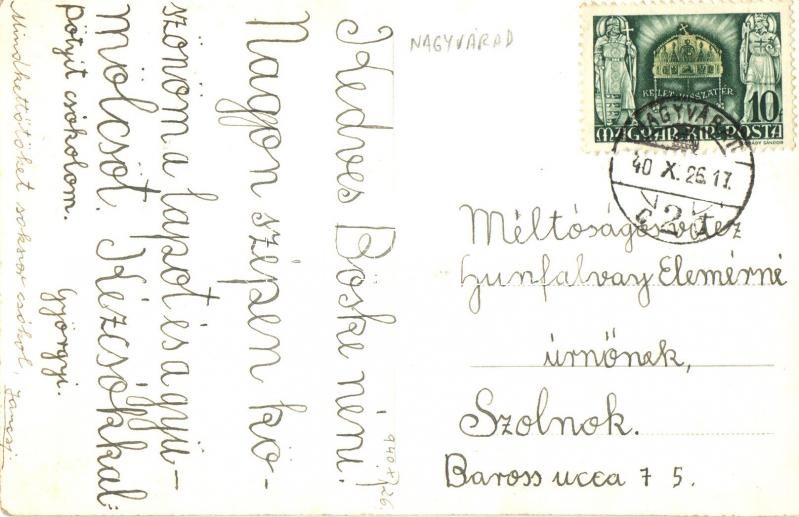 Kedves Böske néni!
Nagyon szépen kö-
szönöm a lapot és a gyü-
mölcsöt. Kézcsókkal:
pötyit csókolom. Györgyi.
Mindkettőtöket sokszor csókol, Jancsi
940.X/26
NAGYVÁRAD
KELET VISSZATÉR
10f
MAGYAR KIR. POSTA
NAGYVÁRAD
40 X. 26. 17.
2
Méltóságos vitéz
Hunfalvay Elemérné
úrnőnek,
Szolnok.
Baross ucca 75.